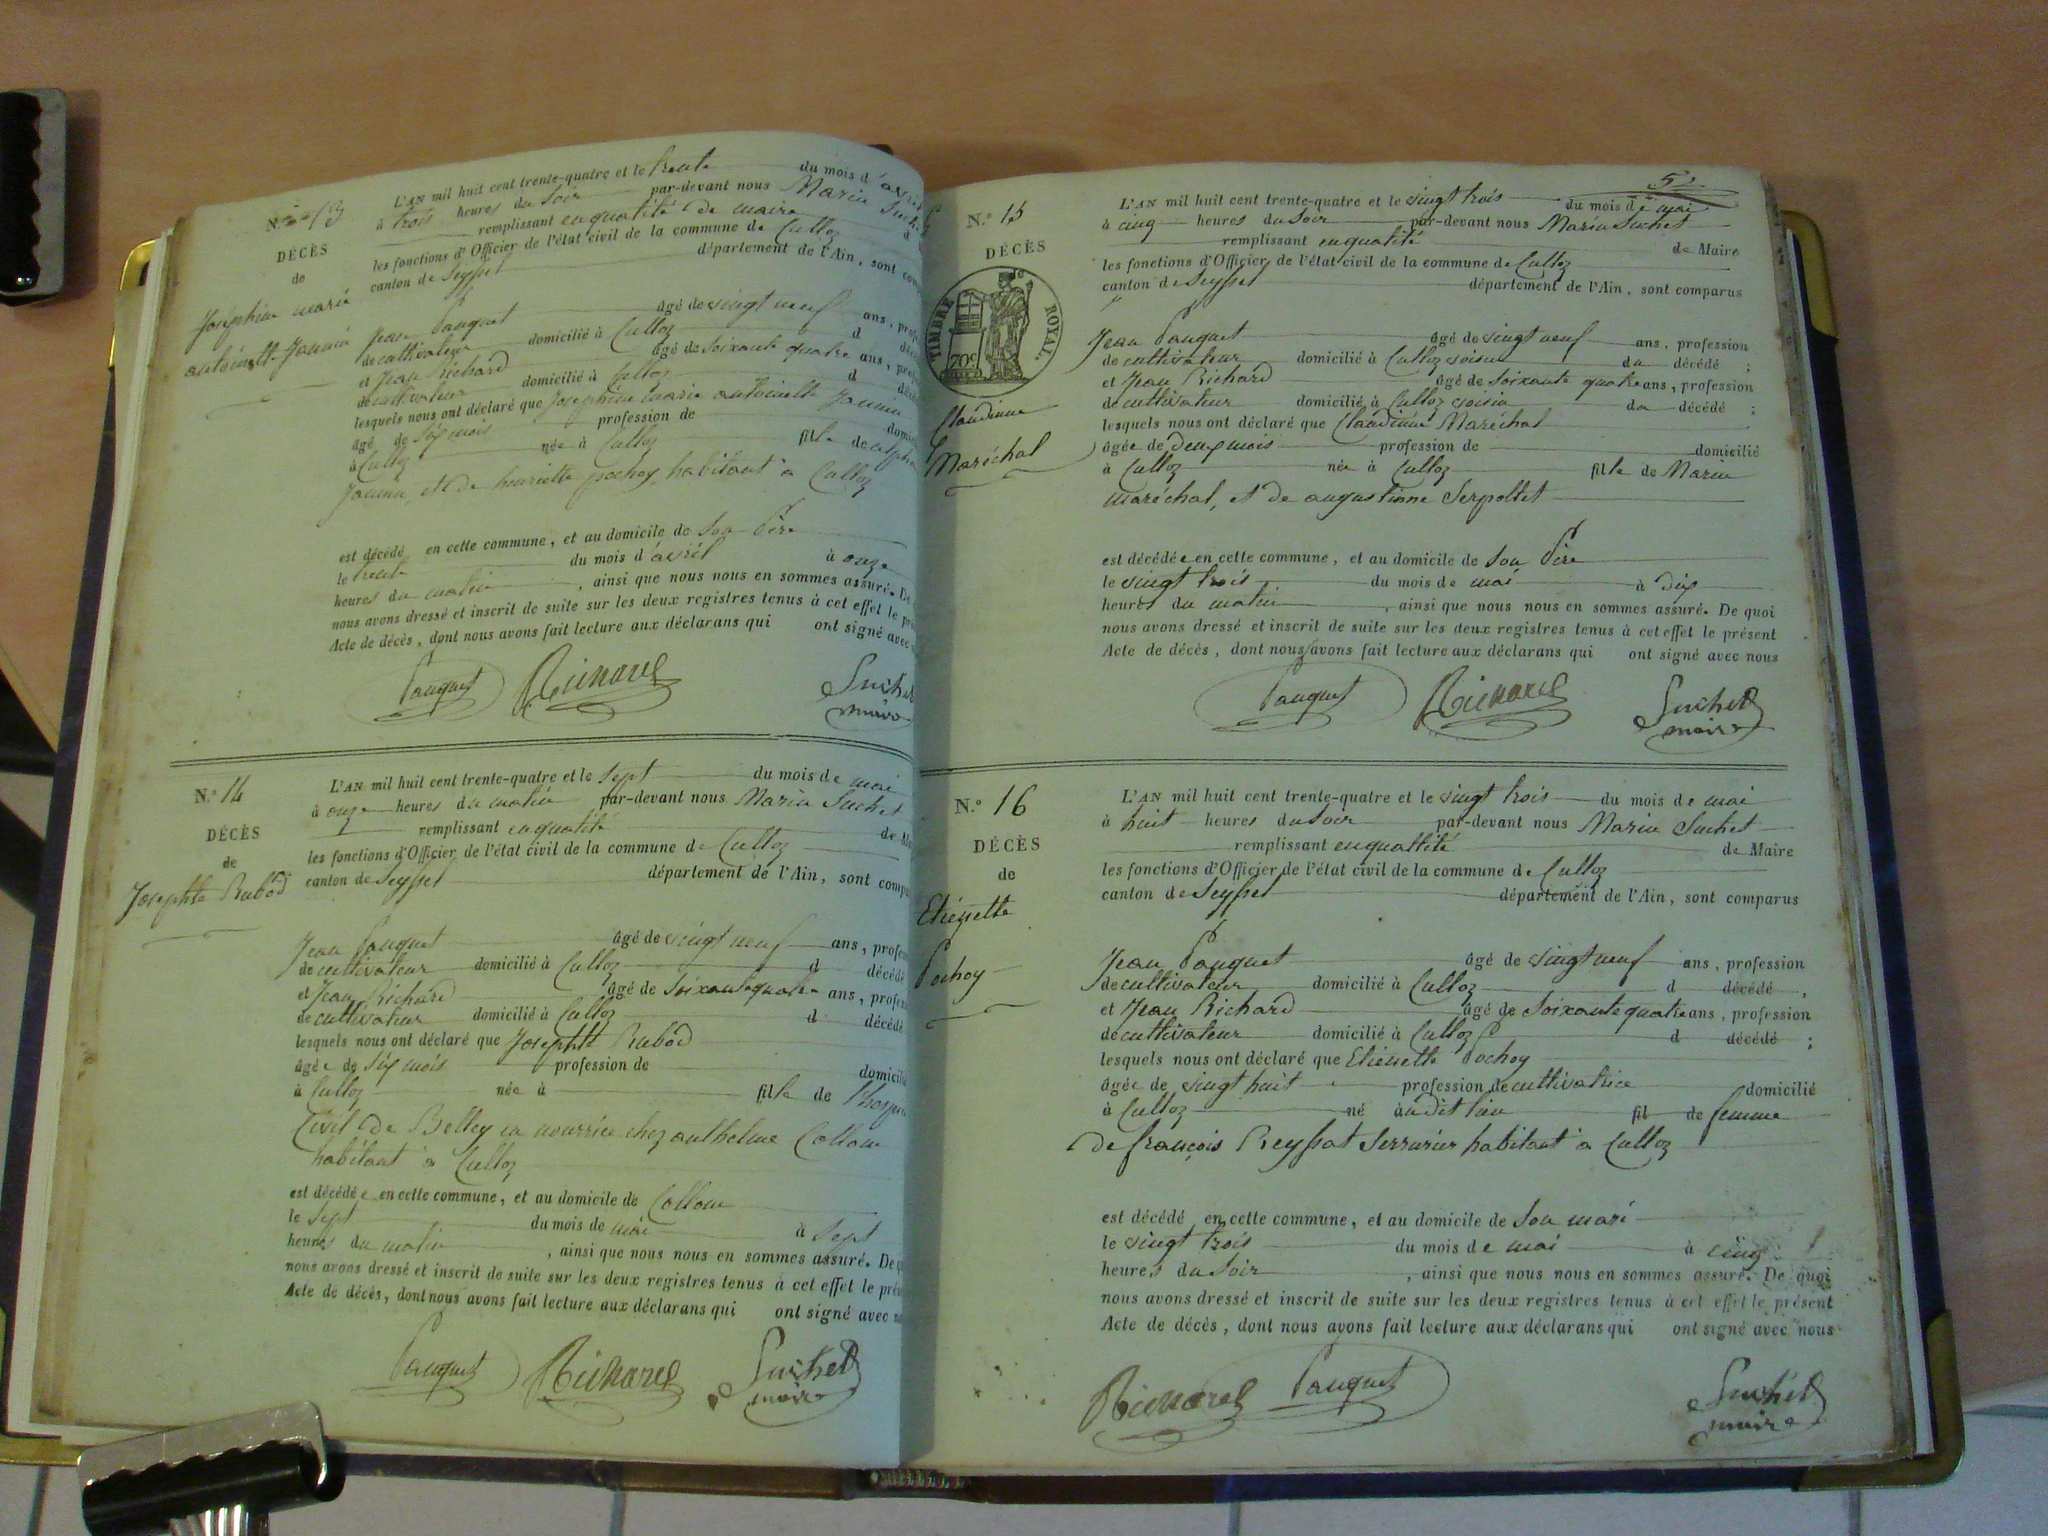 N.° 13
DÉCÈS
de
Joséphine marie
antoinette Jannin
L'AN mil huit cent trente-quatre et le trente du mois d'avril
à trois heures du soir par-devant nous Marin Suchet
remplissant en qualité de maire
les fonctions d'Officier de l'état civil de la commune de Culloz
canton de Seyssel département de l'Ain, sont
Jean Pauquet âgé de vingt neuf ans,
de cultivateur domicilié à Culloz d
et Jean Richard âgé de soixante quatre ans,
de cultivateur domicilié à Culloz d
lesquels nous ont déclaré que Joséphine marie antoinette Jannin
âgé de six mois profession de
à Culloz née à Culloz fille de
Jannin, et de henriette pochoy, habitant à Culloz
est décédé en cette commune, et au domicile de son Père
le trente du mois d'avril à onze
heures du matin, ainsi que nous nous en sommes assuré. De
nous avons dressé et inscrit de suite sur les deux registres tenus à cet effet le
Acte de décès, dont nous avons fait lecture aux déclarans qui ont signé avec
Pauquet Richard Suchet
maire
N.° 14
DÉCÈS
de
Josephte Rubod
L'AN mil huit cent trente-quatre et le sept du mois de mai
à onze heures du matin par-devant nous Marin Suchet
remplissant en qualité de
les fonctions d'Officier de l'état civil de la commune de Culloz
canton de Seyssel département de l'Ain, sont
Jean Pauquet âgé de vingt neuf ans,
de cultivateur domicilié à Culloz d décédé
et Jean Richard âgé de soixante quatre ans,
de cultivateur domicilié à Culloz d décédé
lesquels nous ont déclaré que Josephte Rubod
âgée de six mois profession de
à Culloz née à fille de
Civil de Belley en nourrice chez anthelme Collom
habitant à Culloz
est décédée en cette commune, et au domicile de Collom
le sept du mois de mai à sept
heures du matin, ainsi que nous nous en sommes assuré. De
nous avons dressé et inscrit de suite sur les deux registres tenus à cet effet le
Acte de décès, dont nous avons fait lecture aux déclarans qui ont signé avec
Pauquet Richard Suchet
maire
52
N.° 15
DÉCÈS
TIMBRE ROYAL.
70c
Claudine
Maréchal
L'AN mil huit cent trente-quatre et le vingt trois du mois de mai
à cinq heures du soir par-devant nous Marin Suchet
remplissant en qualité de Maire
les fonctions d'Officier de l'état civil de la commune de Culloz
canton de Seyssel département de l'Ain, sont comparus
Jean Pauquet âgé de vingt neuf ans, profession
de cultivateur domicilié à Culloz voisin du décédé ;
et Jean Richard âgé de soixante quatre ans, profession
de cultivateur domicilié à Culloz voisin du décédé ;
lesquels nous ont déclaré que Claudine Maréchal
âgée de deux mois profession de domicilié
à Culloz née à Culloz fille de Marin
maréchal, et de augustinne Serpollet
est décédée en cette commune, et au domicile de son Père
le vingt trois du mois de mai à dix
heures du matin, ainsi que nous nous en sommes assuré. De quoi
nous avons dressé et inscrit de suite sur les deux registres tenus à cet effet le présent
Acte de décès, dont nous avons fait lecture aux déclarans qui ont signé avec nous
Pauquet Richard Suchet
maire
N.° 16
DÉCÈS
de
Etiénette
Pochoy
L'AN mil huit cent trente-quatre et le vingt trois du mois de mai
à huit heures du soir par-devant nous Marin Suchet
remplissant en qualité de Maire
les fonctions d'Officier de l'état civil de la commune de Culloz
canton de Seyssel département de l'Ain, sont comparus
Jean Pauquet âgé de vingt neuf ans, profession
de cultivateur domicilié à Culloz d décédé ,
et Jean Richard âgé de soixante quatre ans, profession
de cultivateur domicilié à Culloz d décédé ;
lesquels nous ont déclaré que Etiénette Pochoy
âgée de vingt huit profession de cultivatrice domicilié
à Culloz né audit lieu fil de femme
de françois Reyssat serrurier habitant à Culloz
est décédé en cette commune, et au domicile de son mari
le vingt trois du mois de mai à cinq
heures du soir, ainsi que nous nous en sommes assuré. De quoi
nous avons dressé et inscrit de suite sur les deux registres tenus à cet effet le présent
Acte de décès, dont nous avons fait lecture aux déclarans qui ont signé avec nous
Richard Pauquet Suchet
maire